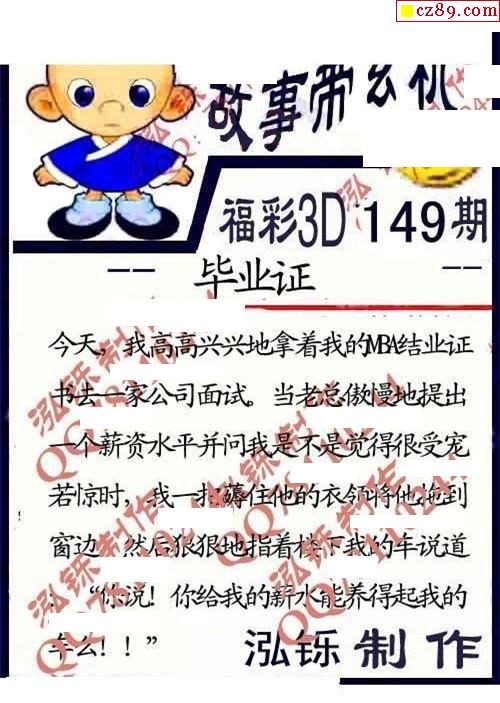 cz89.com
故事带玄机
福彩3D 149期
毕业证
今天，我高高兴兴地拿着我的MBA结业证
书去一家公司面试。当老总傲慢地提出
一个薪资水平并问我是不是觉得很受宠
若惊时，我一把薅住他的衣领将他拖到
窗边，然后狠狠地指着楼下我的车说道
：“你说！你给我的薪水能养得起我的
车么！！”
泓铄制作